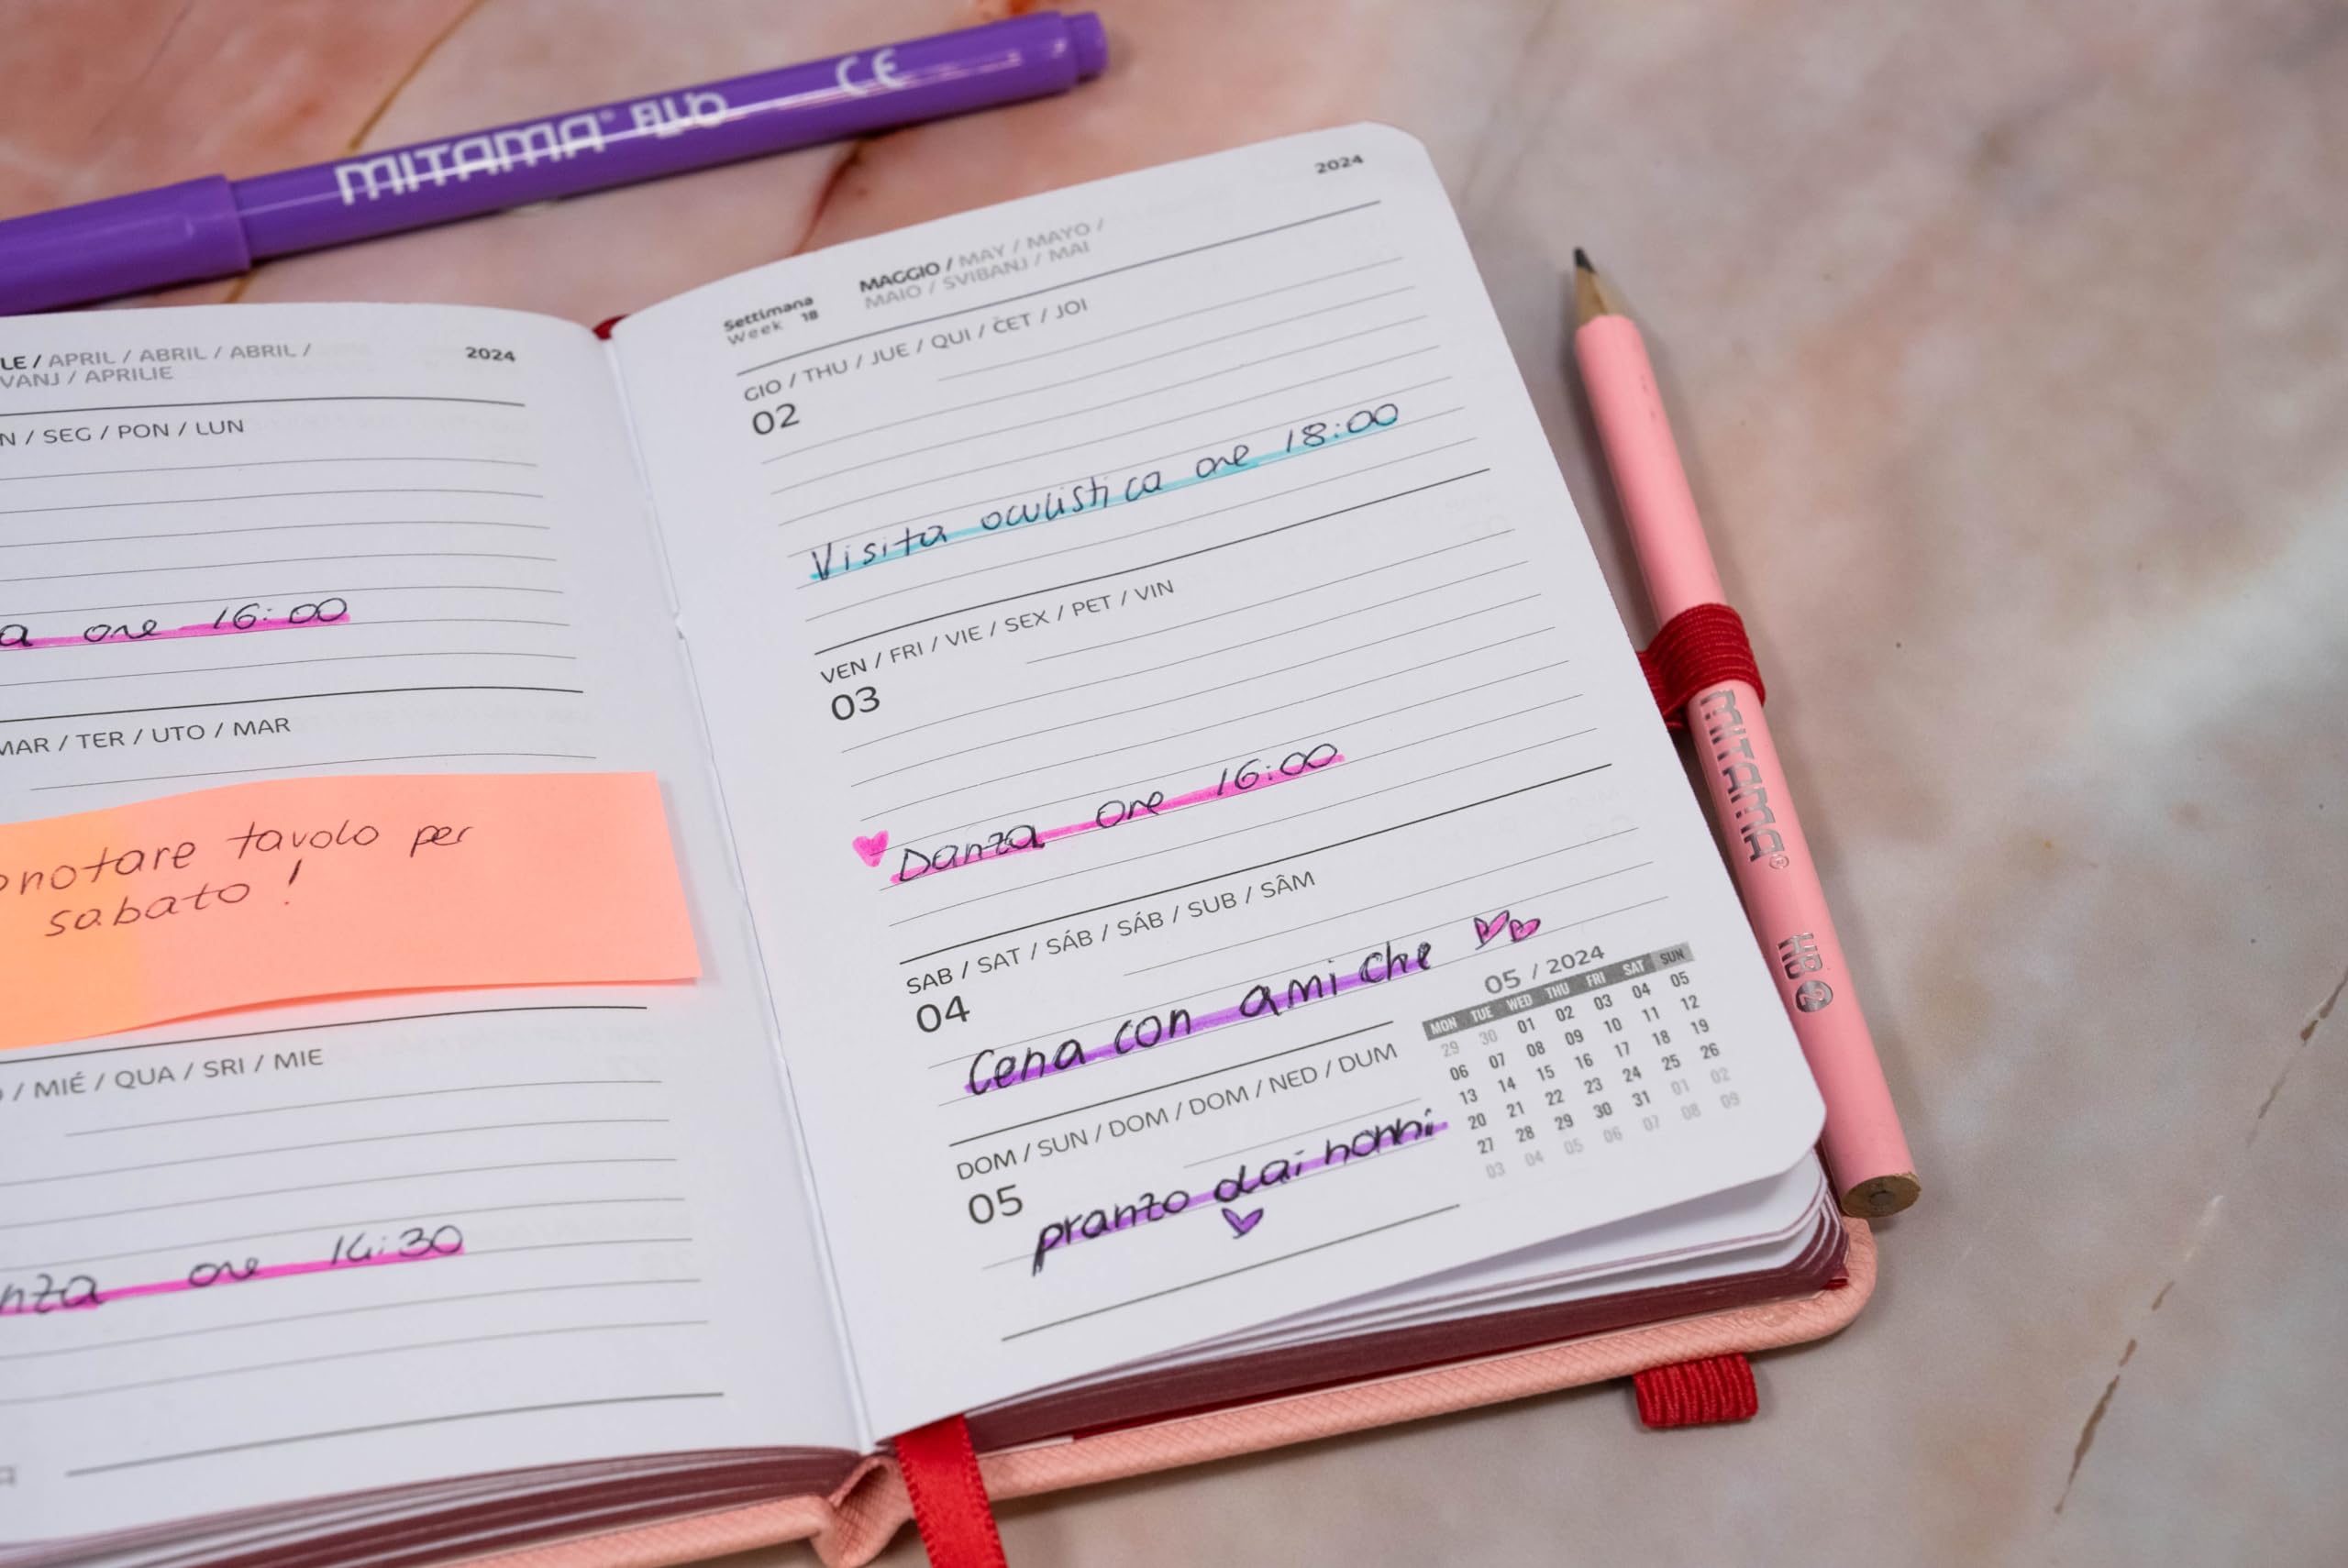 MITAMA® CE
LE / APRIL / ABRIL / ABRIL /
VANJ / APRILIE
2024
N / SEG / PON / LUN
a ore 16:00
MAR / TER / UTO / MAR
notare tavolo per
sabato!
/ MIÉ / QUA / SRI / MIE
nza ore 14:30
2024
Settimana
Week 18
MAGGIO / MAY / MAYO /
MAIO / SVIBANJ / MAI
GIO / THU / JUE / QUI / ČET / JOI
02
Visita oculistica ore 18:00
VEN / FRI / VIE / SEX / PET / VIN
03
Danza ore 16:00
SAB / SAT / SÁB / SÁB / SUB / SÂM
04
Cena con amiche
DOM / SUN / DOM / DOM / NED / DUM
05
pranzo dai nonni
05 / 2024
MON TUE WED THU FRI SAT SUN
29 30 01 02 03 04 05
06 07 08 09 10 11 12
13 14 15 16 17 18 19
20 21 22 23 24 25 26
27 28 29 30 31 01 02
03 04 05 06 07 08 09
MITAMA® HB 2